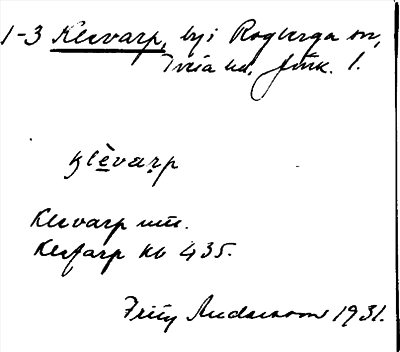 1-3 Klevarp, by i Rogberga sn,
Tveta hd, Jönk. l.
klèvarp
Klevarp uu.
Klefarp kb 435.
Fritz Andersson 1931.